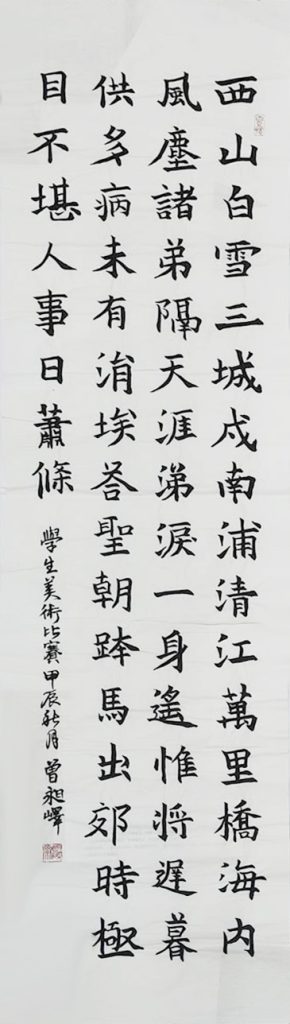 西山白雪三城戍南浦清江萬里橋海内
風塵諸弟隔天涯涕淚一身遙惟將遲暮
供多病未有涓埃荅聖朝跨馬出郊時極
目不堪人事日蕭條
學生美術比賽甲辰秋月曾昶嶧